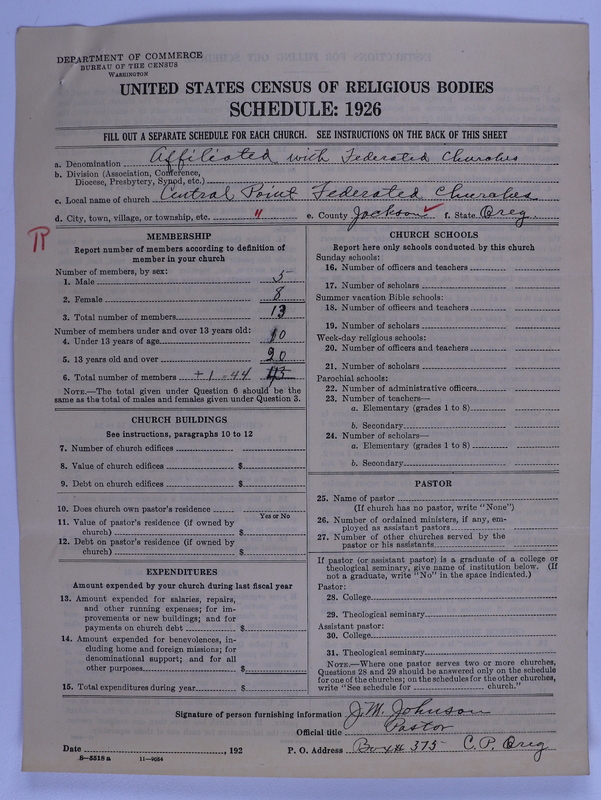 DEPARTMENT OF COMMERCE
BUREAU OF THE CENSUS
WASHINGTON
UNITED STATES CENSUS OF RELIGIOUS BODIES
SCHEDULE: 1926
FILL OUT A SEPARATE SCHEDULE FOR EACH CHURCH. SEE INSTRUCTIONS ON THE BACK OF THIS SHEET
a. Denomination Affiliated with Federated Churches
b. Division (Association, Conference, Diocese, Presbytery, Synod, etc.)
c. Local name of church Central Point Federated Churches
d. City, town, village, or township, etc. " e. County Jackson ✓ f. State Oreg.
MEMBERSHIP
Report number of members according to definition of
member in your church
Number of members, by sex:
1. Male 5
2. Female 8
3. Total number of members 13
Number of members under and over 13 years old:
4. Under 13 years of age 10
5. 13 years old and over 20
6. Total number of members +1 = 44
NOTE.—The total given under Question 6 should be the
same as the total of males and females given under Question 3.
CHURCH BUILDINGS
See instructions, paragraphs 10 to 12
7. Number of church edifices
8. Value of church edifices $
9. Debt on church edifices $
10. Does church own pastor's residence
Yes or No
11. Value of pastor's residence (if owned by
church) $
12. Debt on pastor's residence (if owned by
church) $
EXPENDITURES
Amount expended by your church during last fiscal year
13. Amount expended for salaries, repairs,
and other running expenses; for im-
provements or new buildings; and for
payments on church debt $
14. Amount expended for benevolences, in-
cluding home and foreign missions; for
denominational support; and for all
other purposes $
15. Total expenditures during year $
CHURCH SCHOOLS
Report here only schools conducted by this church
Sunday schools:
16. Number of officers and teachers
17. Number of scholars
Summer vacation Bible schools:
18. Number of officers and teachers
19. Number of scholars
Week-day religious schools:
20. Number of officers and teachers
21. Number of scholars
Parochial schools:
22. Number of administrative officers
23. Number of teachers—
a. Elementary (grades 1 to 8)
b. Secondary
24. Number of scholars—
a. Elementary (grades 1 to 8)
b. Secondary
PASTOR
25. Name of pastor
(If church has no pastor, write "None")
26. Number of ordained ministers, if any, em-
ployed as assistant pastors
27. Number of other churches served by the
pastor or his assistants
If pastor (or assistant pastor) is a graduate of a college or
theological seminary, give name of institution below. (If
not a graduate, write "No" in the space indicated.)
Pastor:
28. College
29. Theological seminary
Assistant pastor:
30. College
31. Theological seminary
NOTE.—Where one pastor serves two or more churches,
Questions 28 and 29 should be answered only on the schedule
for one of the churches; on the schedules for the other churches,
write "See schedule for church."
Signature of person furnishing information J.M. Johnson
Official title Pastor
Date , 192 P. O. Address Box # 375 C.P. Oreg
8—5518 a 11—9054